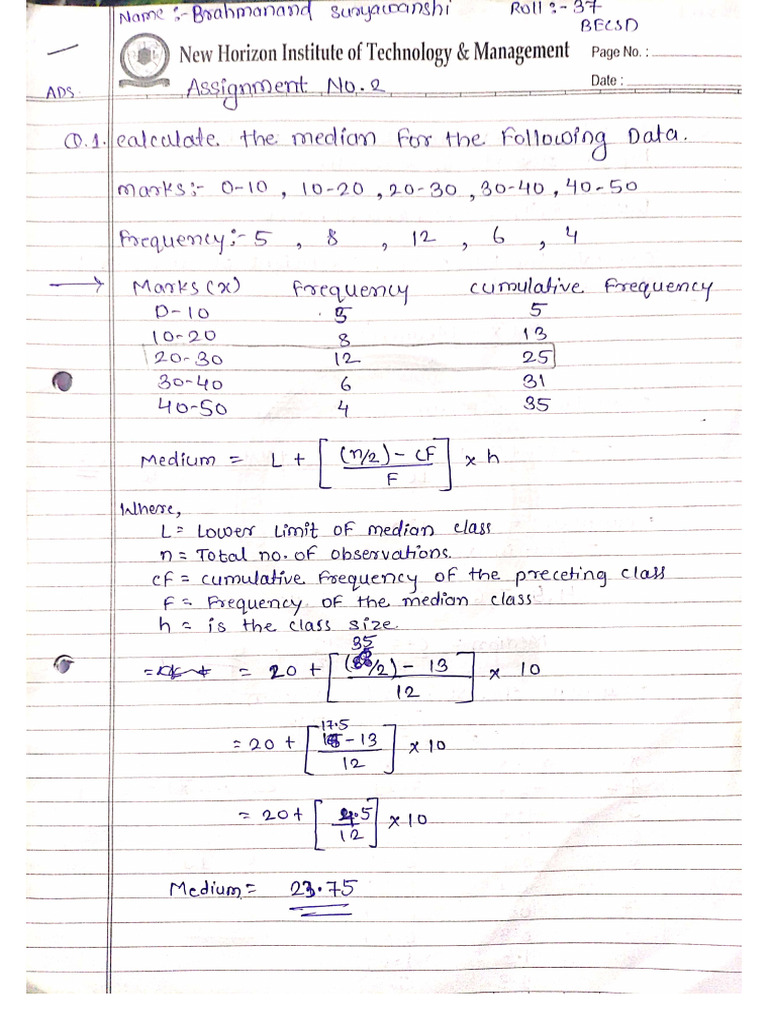 Name :- Brahmanand Suryawanshi Roll :- 37
BECSD
New Horizon Institute of Technology & Management Page No. :
ADS Assignment No. 2 Date :
Q.1. calculate the median for the following Data.
marks:- 0-10 , 10-20 , 20-30 , 30-40 , 40-50
frequency:- 5 , 8 , 12 , 6 , 4
→ Marks (x) frequency cumulative frequency
0-10 5 5
10-20 8 13
20-30 12 25
30-40 6 31
40-50 4 35
Medium = L + [ (n/2) - CF / F ] x h
Where,
L = Lower Limit of median class
n = Total no. of observations.
cf = cumulative frequency of the preceting class
F = Frequency of the median class
h = is the class size.
= 20 + [ (35/2) - 13 / 12 ] x 10
= 20 + [ 17.5 - 13 / 12 ] x 10
= 20 + [ 4.5 / 12 ] x 10
Medium = 23.75